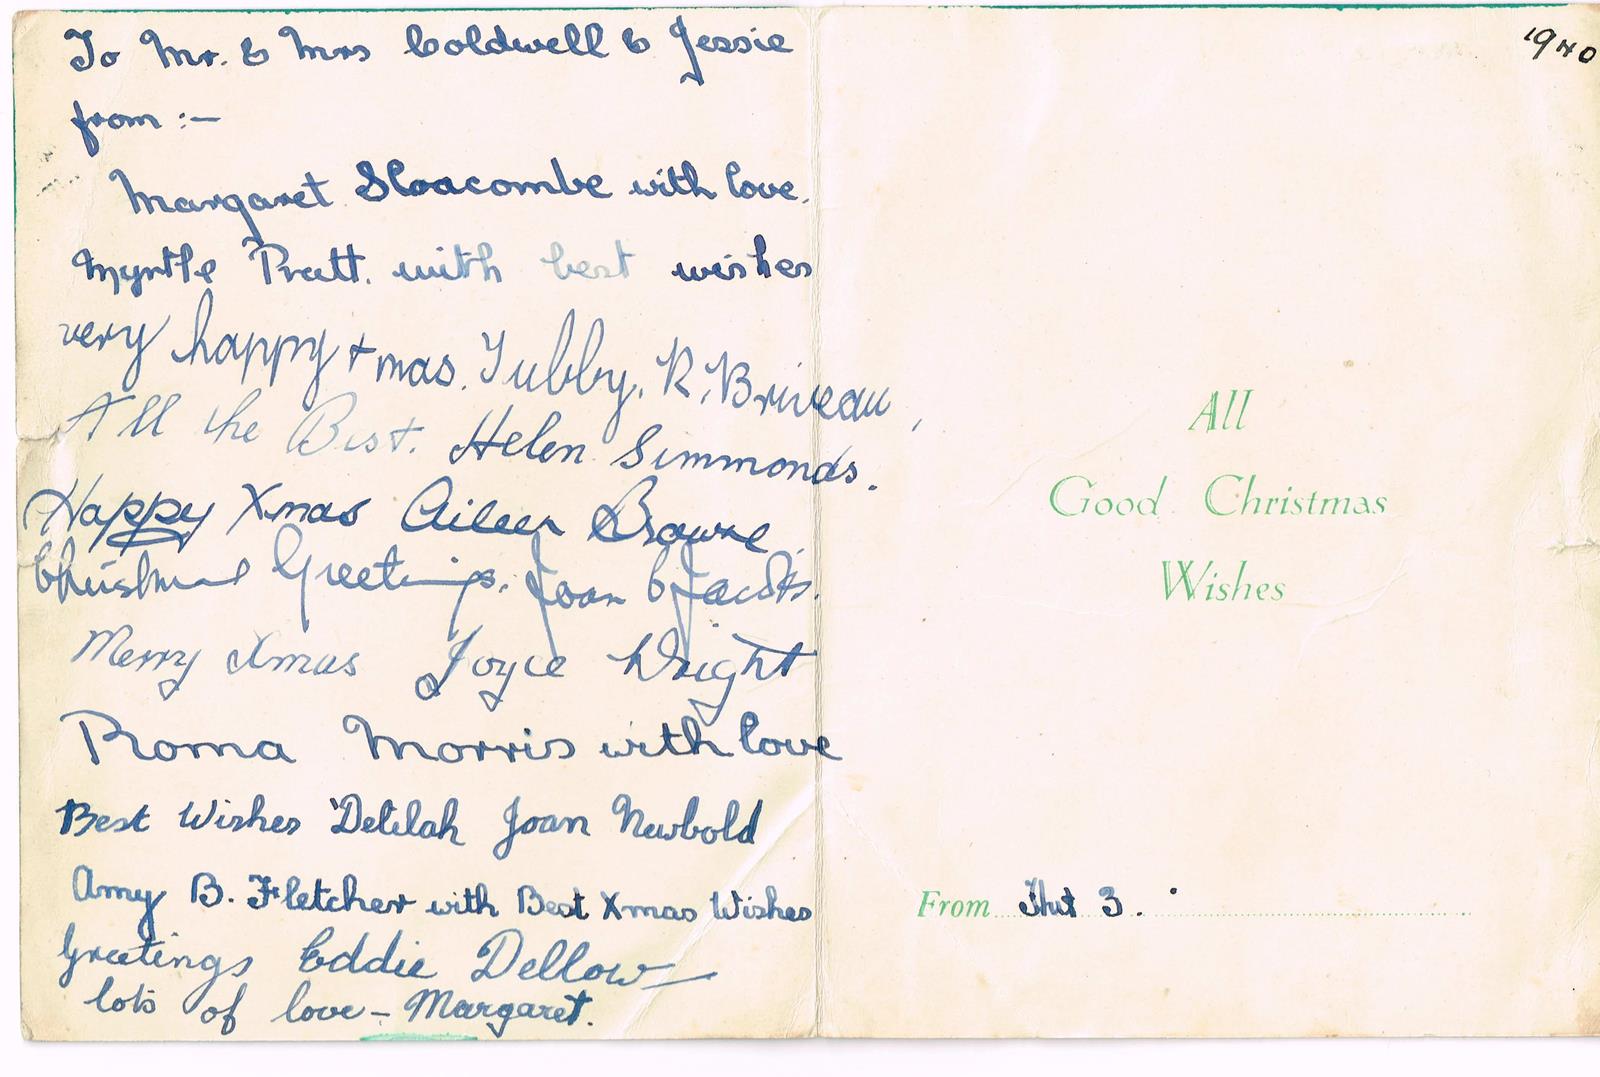 To Mr. & Mrs Coldwell & Jessie
from :-
Margaret Sloacombe with love.
Myrtle Pratt. with best wishes
very happy xmas. Tubby. R. Briveau,
All the Best. Helen Simmonds.
Happy Xmas Aileen Browne
Christmas Greetings. Joan
Merry Xmas Joyce Wright
Roma Morris with love
Best Wishes Delilah Joan Newbold
Amy B. Fletcher with Best Xmas Wishes
Greetings Eddie Dellow
lots of love - Margaret.
1940
All
Good Christmas
Wishes
From Hut 3.